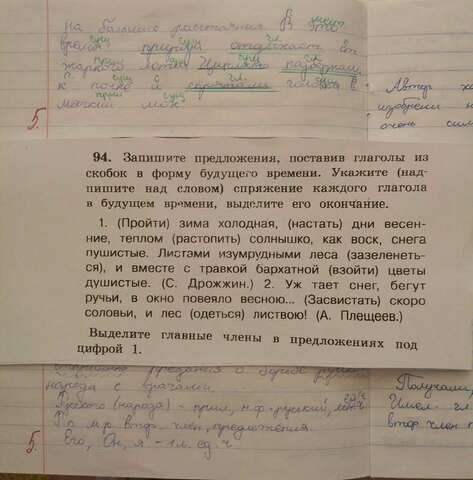 на большо расстояния В это
время природа отдыхает от
жаркого лета
к почве и спрятали головы в
мягкий мох.
5.
Автор
изобрели
очень
94. Запишите предложения, поставив глаголы из
скобок в форму будущего времени. Укажите (над-
пишите над словом) спряжение каждого глагола
в будущем времени, выделите его окончание.
1. (Пройти) зима холодная, (настать) дни весен-
ние, теплом (растопить) солнышко, как воск, снега
пушистые. Листами изумрудными леса (зазеленеть-
ся), и вместе с травкой бархатной (взойти) цветы
душистые. (С. Дрожжин.) 2. Уж тает снег, бегут
ручьи, в окно повеяло весною... (Засвистать) скоро
соловьи, и лес (одеться) листвою! (А. Плещеев.)
Выделите главные члены в предложениях под
цифрой 1.
о борьбе
народа с врагами
(народа) - прил., н.ф. - русский,
Р.п м.р. втор. член, предложения.
5.
его, Он, я - 1 л. ед. ч
Получали,
Имел. гл.
втор член п